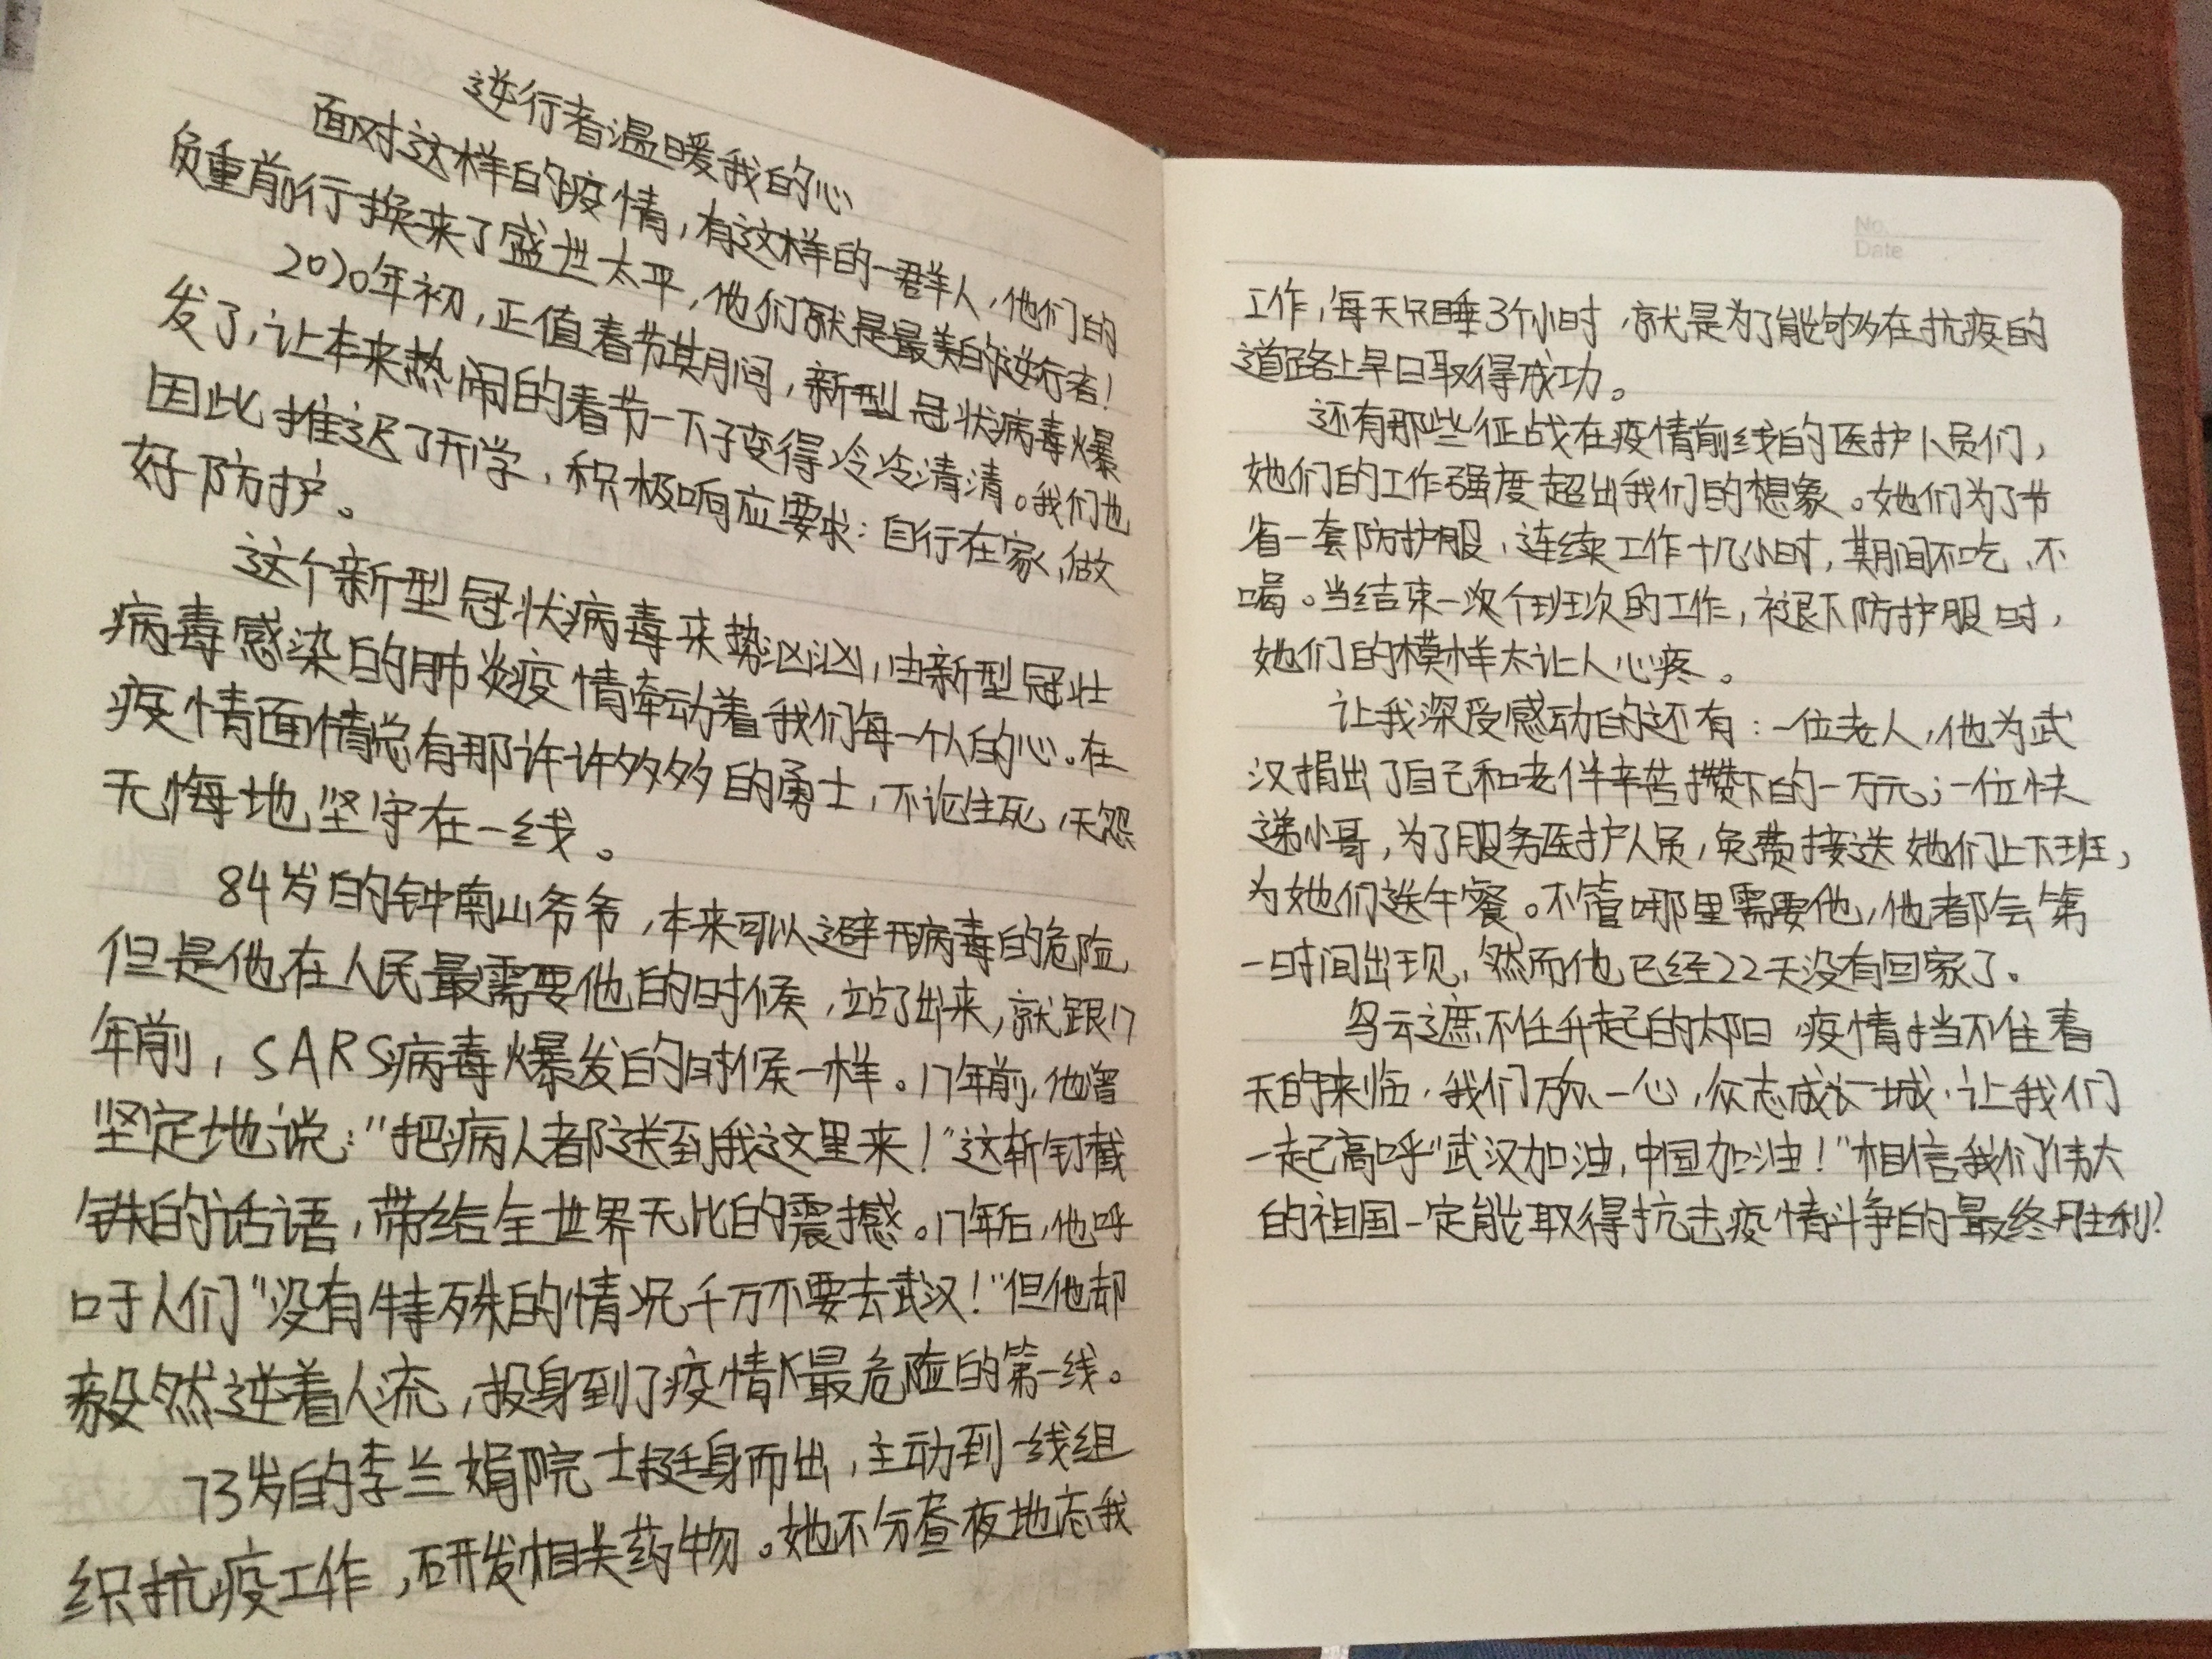 逆行者温暖我的心
面对这样的疫情,有这样的一群人,他们的
负重前行换来了盛世太平,他们就是最美的逆行者!
2020年初,正值春节其月间,新型冠状病毒爆
发了,让本来热闹的春节一下子变得冷冷清清。我们也
因此推迟了开学,积极响应要求:自行在家,做
好防护。
这个新型冠状病毒来势汹汹,由新型冠壮
病毒感染的肺炎疫情牵动着我们每一个人的心。在
疫情面情总有那许许多多的勇士,不论生死,无怨
无悔地坚守在一线。
84岁的钟南山爷爷,本来可以避开病毒的危险,
但是他在人民最需要他的时候,站了出来,就跟17
年前,SARS病毒爆发的时候一样。17年前,他曾
坚定地说:"把病人都送到我这里来!"这斩钉截
铁的话语,带给全世界无比的震撼。17年后,他呼
吁人们"没有特殊的情况千万不要去武汉!"但他却
毅然逆着人流,投身到了疫情最危险的第一线。
73岁的李兰娟院士挺身而出,主动到一线组
织抗疫工作,研发相关药物。她不分昼夜地忘我
No.
Date
工作,每天只睡3个小时,就是为了能够在抗疫的
道路上早日取得成功。
还有那些征战在疫情前线的医护人员们,
她们的工作强度超出我们的想象。她们为了节
省一套防护服,连续工作十几小时,期间不吃、不
喝。当结束一次个班次的工作,褪下防护服时,
她们的模样太让人心疼。
让我深受感动的还有:一位老人,他为武
汉捐出了自己和老伴辛苦攒下的一万元;一位快
递小哥,为了服务医护人员,免费接送她们上下班,
为她们送午餐。不管哪里需要他,他都会第
一时间出现,然而他已经22天没有回家了。
乌云遮不住升起的太阳,疫情挡不住春
天的来临,我们万众一心,众志成城,让我们
一起高呼"武汉加油,中国加油!"相信我们伟大
的祖国一定能取得抗击疫情斗争的最终胜利!